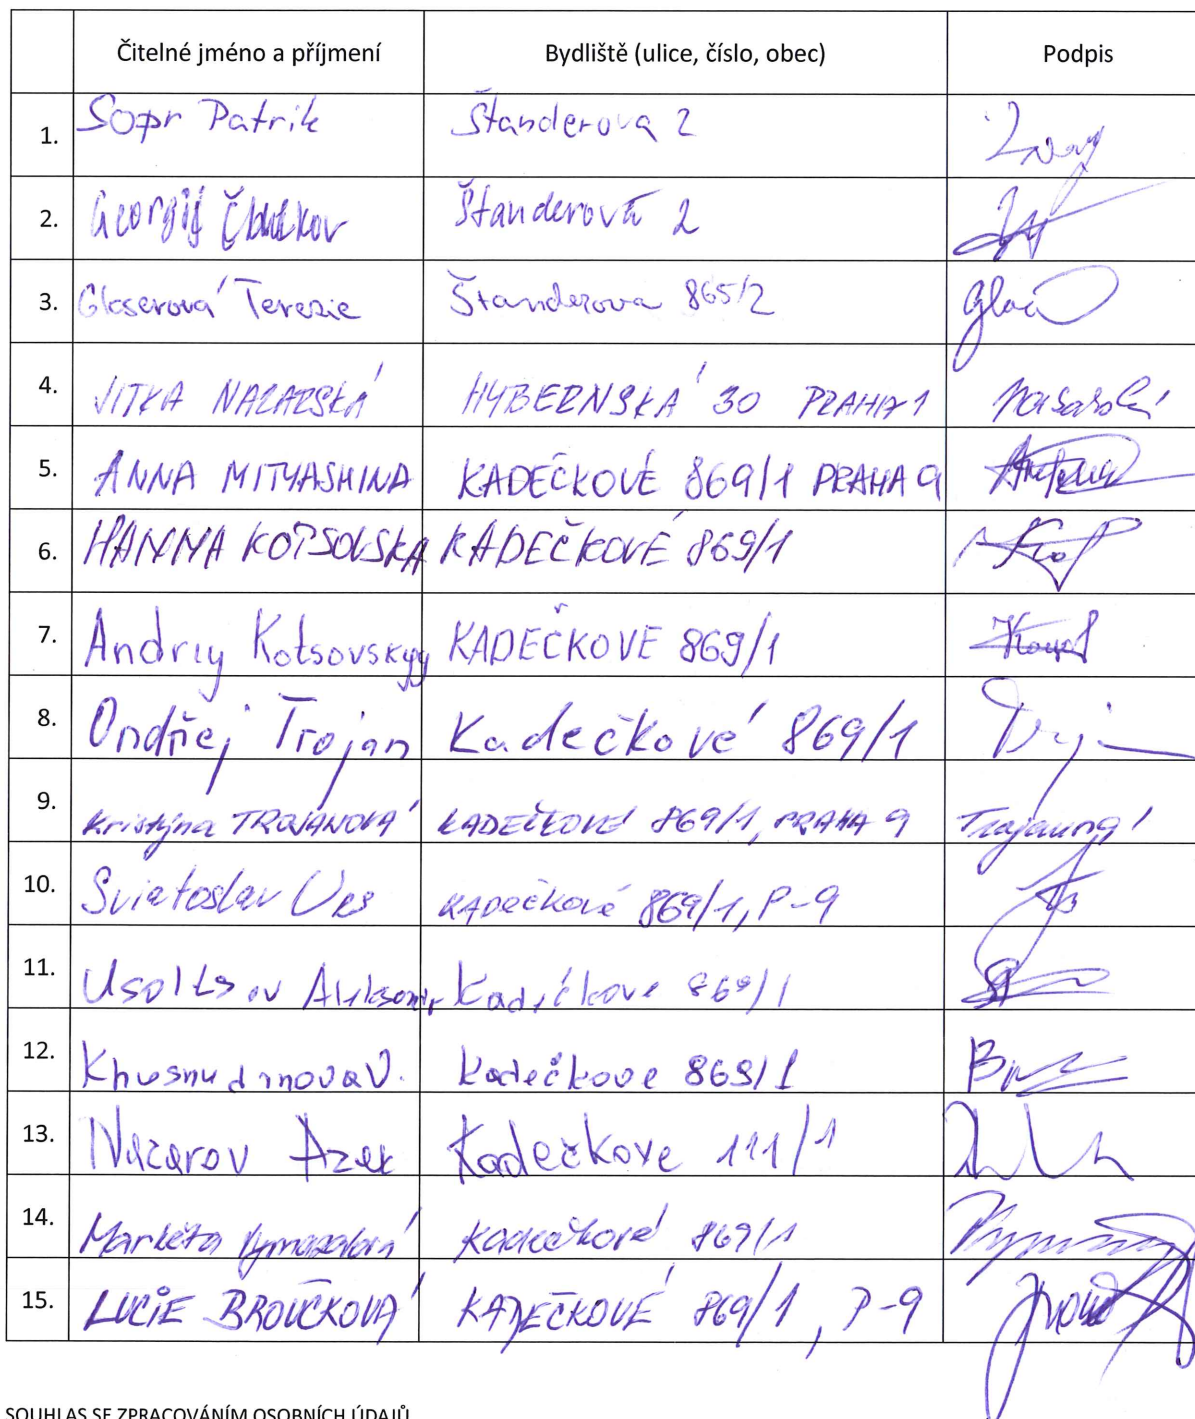 Čitelné jméno a příjmení Bydliště (ulice, číslo, obec) Podpis
1. Sopr Patrik Štanderova 2
2. Georgij Štanderová 2
3. Glaserová Terezie Štanderova 865/2
4. JITKA NAZARSKÁ HYBERNSKÁ 30 PRAHA 1
5. ANNA MITYASHINA KADEČKOVÉ 869/1 PRAHA 9
6. HANNA KOTSOVSKA KADEČKOVÉ 869/1
7. Andriy Kotsovskyy KADEČKOVE 869/1
8. Ondřej Trojan Kadečkové 869/1
9. Kristýna TROJANOVÁ KADEČKOVÉ 869/1, PRAHA 9 Trojanová
10. Sviatoslav KADEČKOVÉ 869/1, P-9
11. Usoltsev Kadečkove 869/1
12. Khusnudinova V. Kadečkove 869/1
13. Nazarov Azek Kadečkove 111/1
14. Markéta Vymazalová Kadečkové 869/1
15. LUCIE BROUČKOVÁ KADEČKOVÉ 869/1, P-9
SOUHLAS SE ZPRACOVÁNÍM OSOBNÍCH ÚDAJŮ